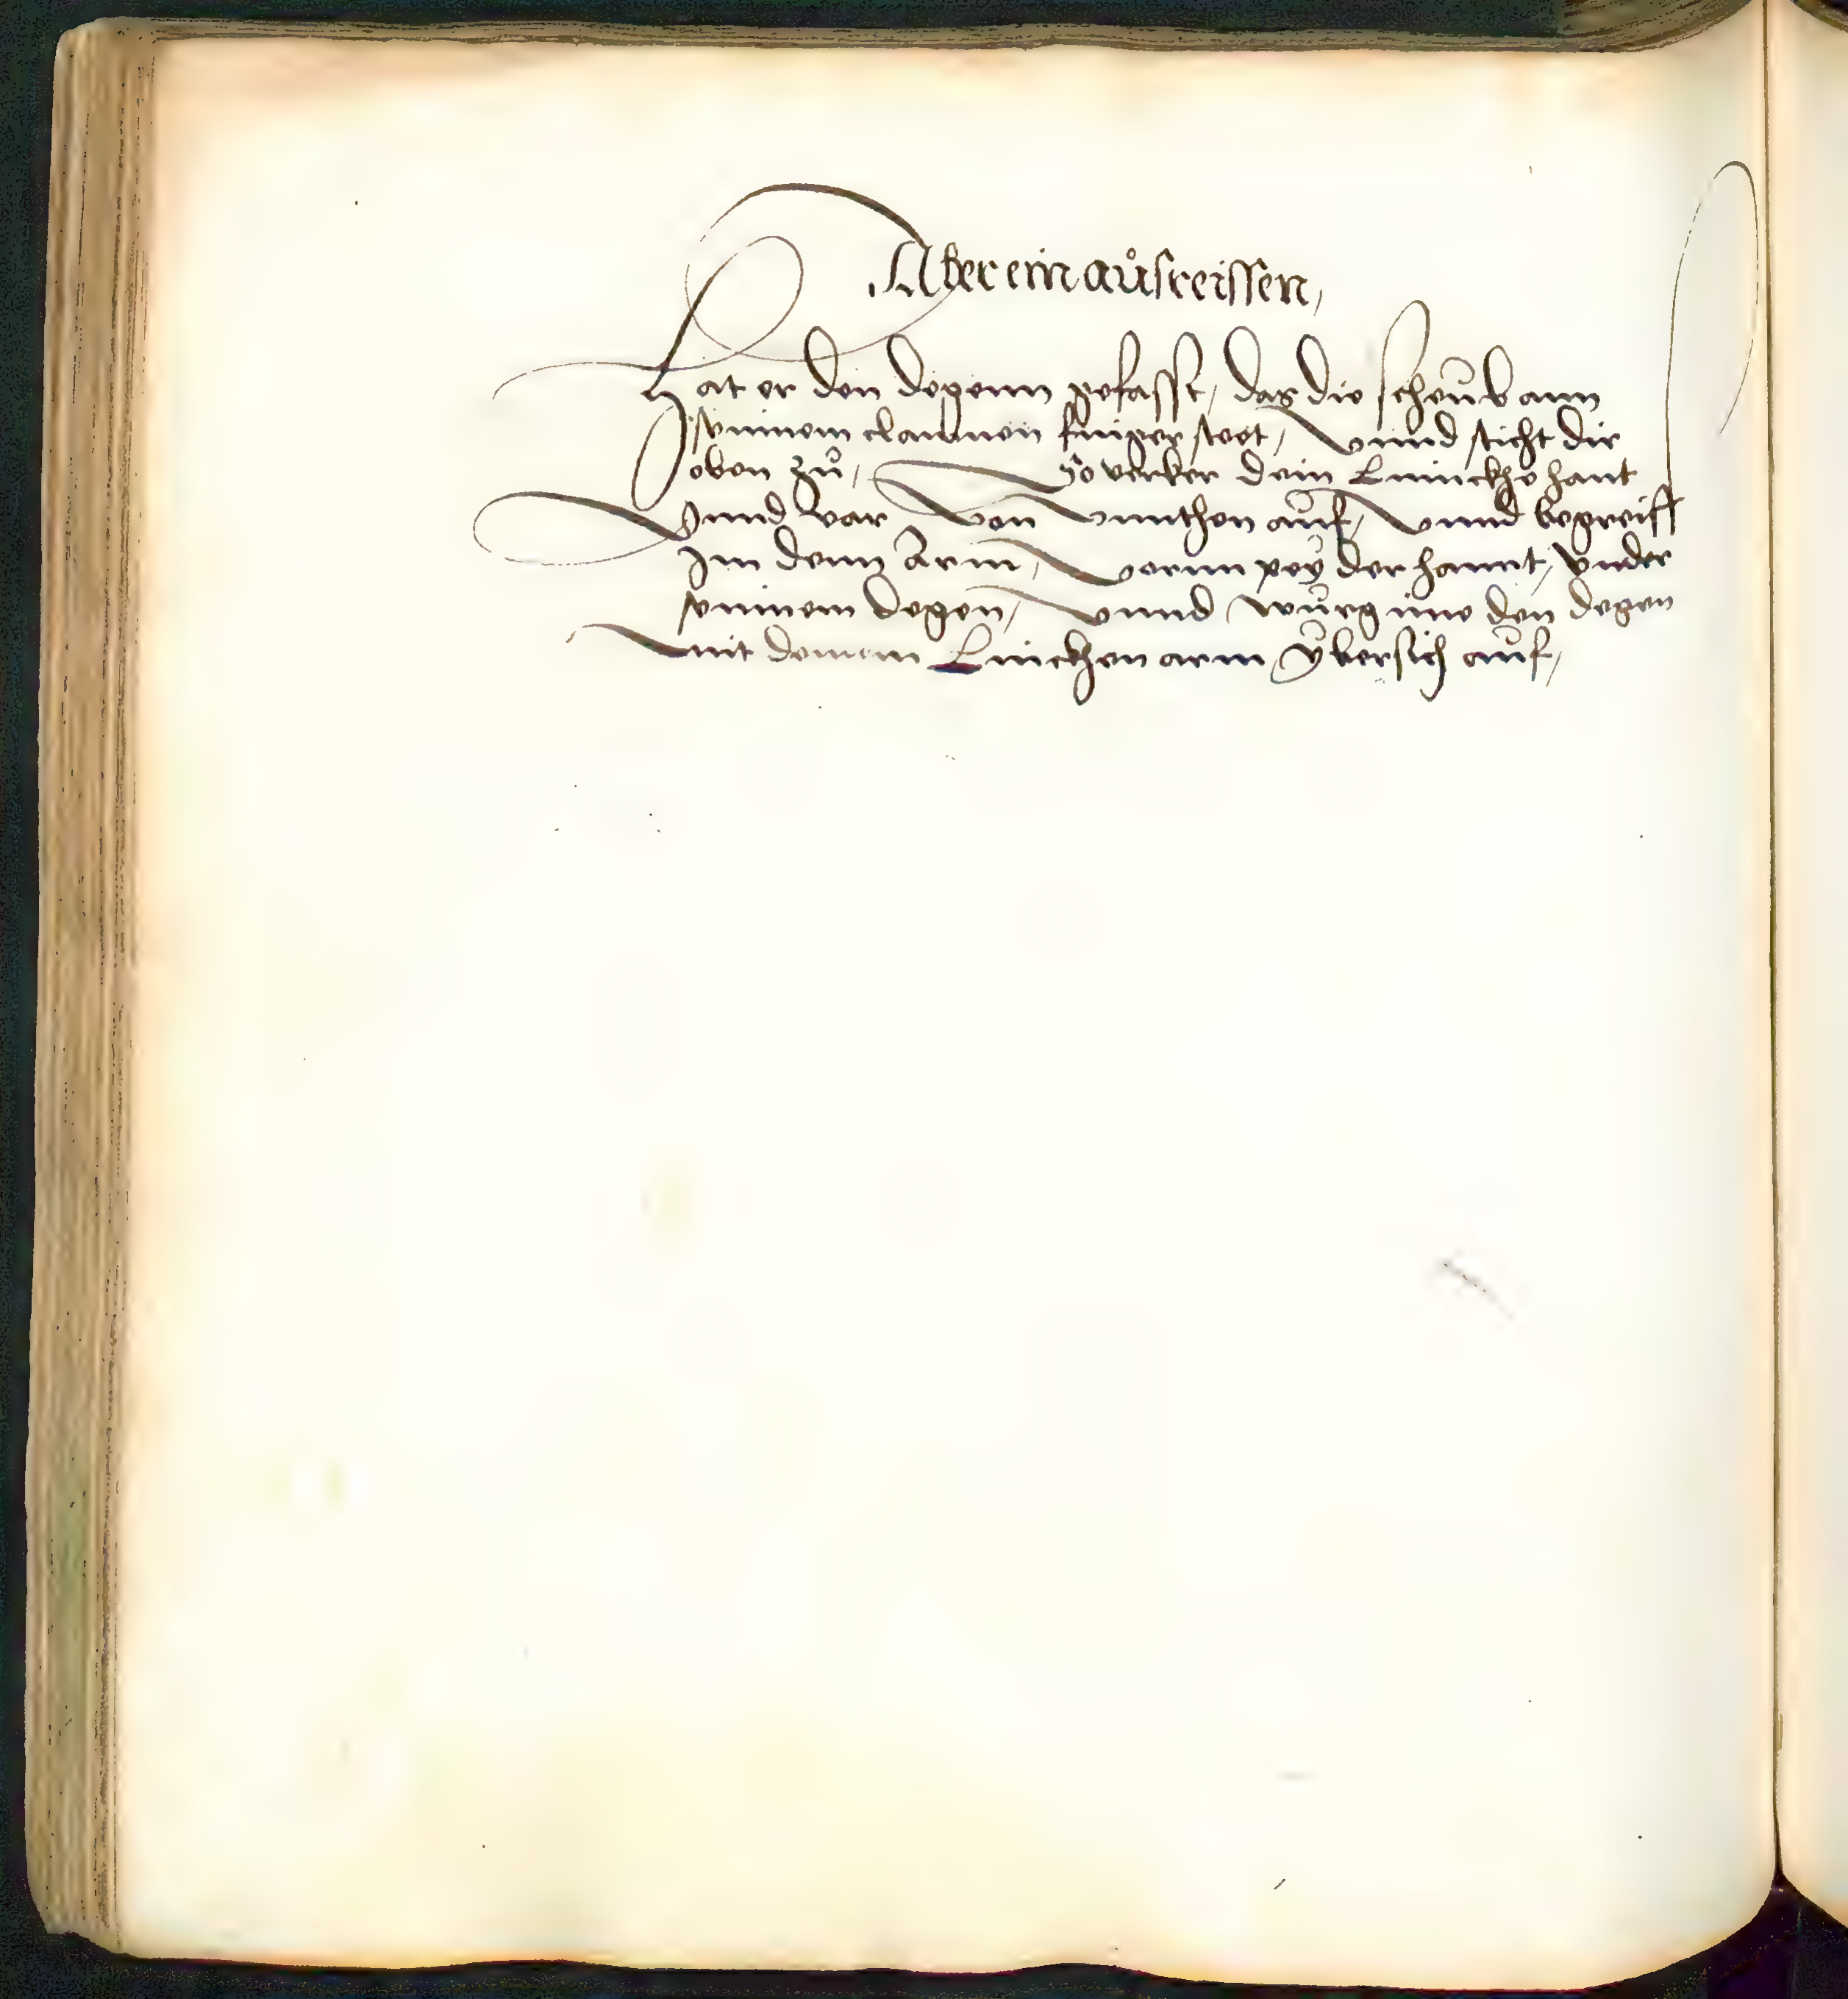 Aber ein aůsreissen,
Hat er den degenn gefasst, das die scheüb ann
seinnem clainnen finger steet, Vnnd sticht dir
oben zů, So verker dein Linnckhe hant
Vnnd var von Vnnthen aüf, Vnnd begreiff
Im denn Arm, Vornn peÿ der hannt, Vnder
seinnem degen, Vnnd würg ime den degen
mit deinem Linckhen arm, Vbersich aüf,